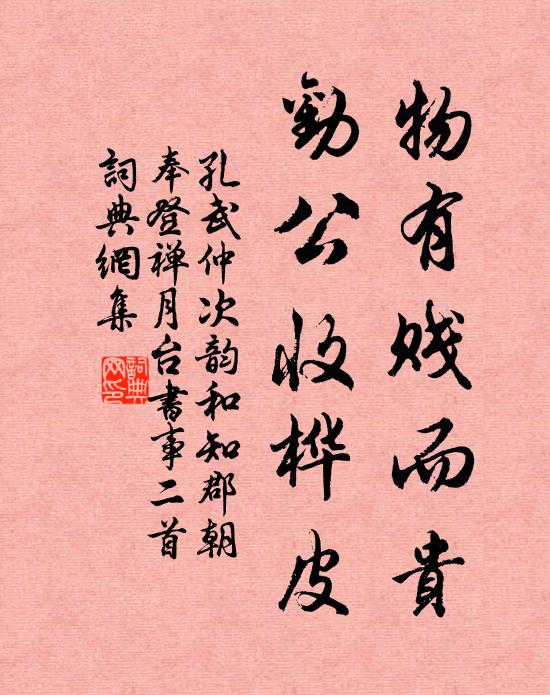 物有贱而貴
勸公收桦皮
孔武仲次韵和知郡朝
奉登禅月台書事二首
詞典網集
詞典
网印